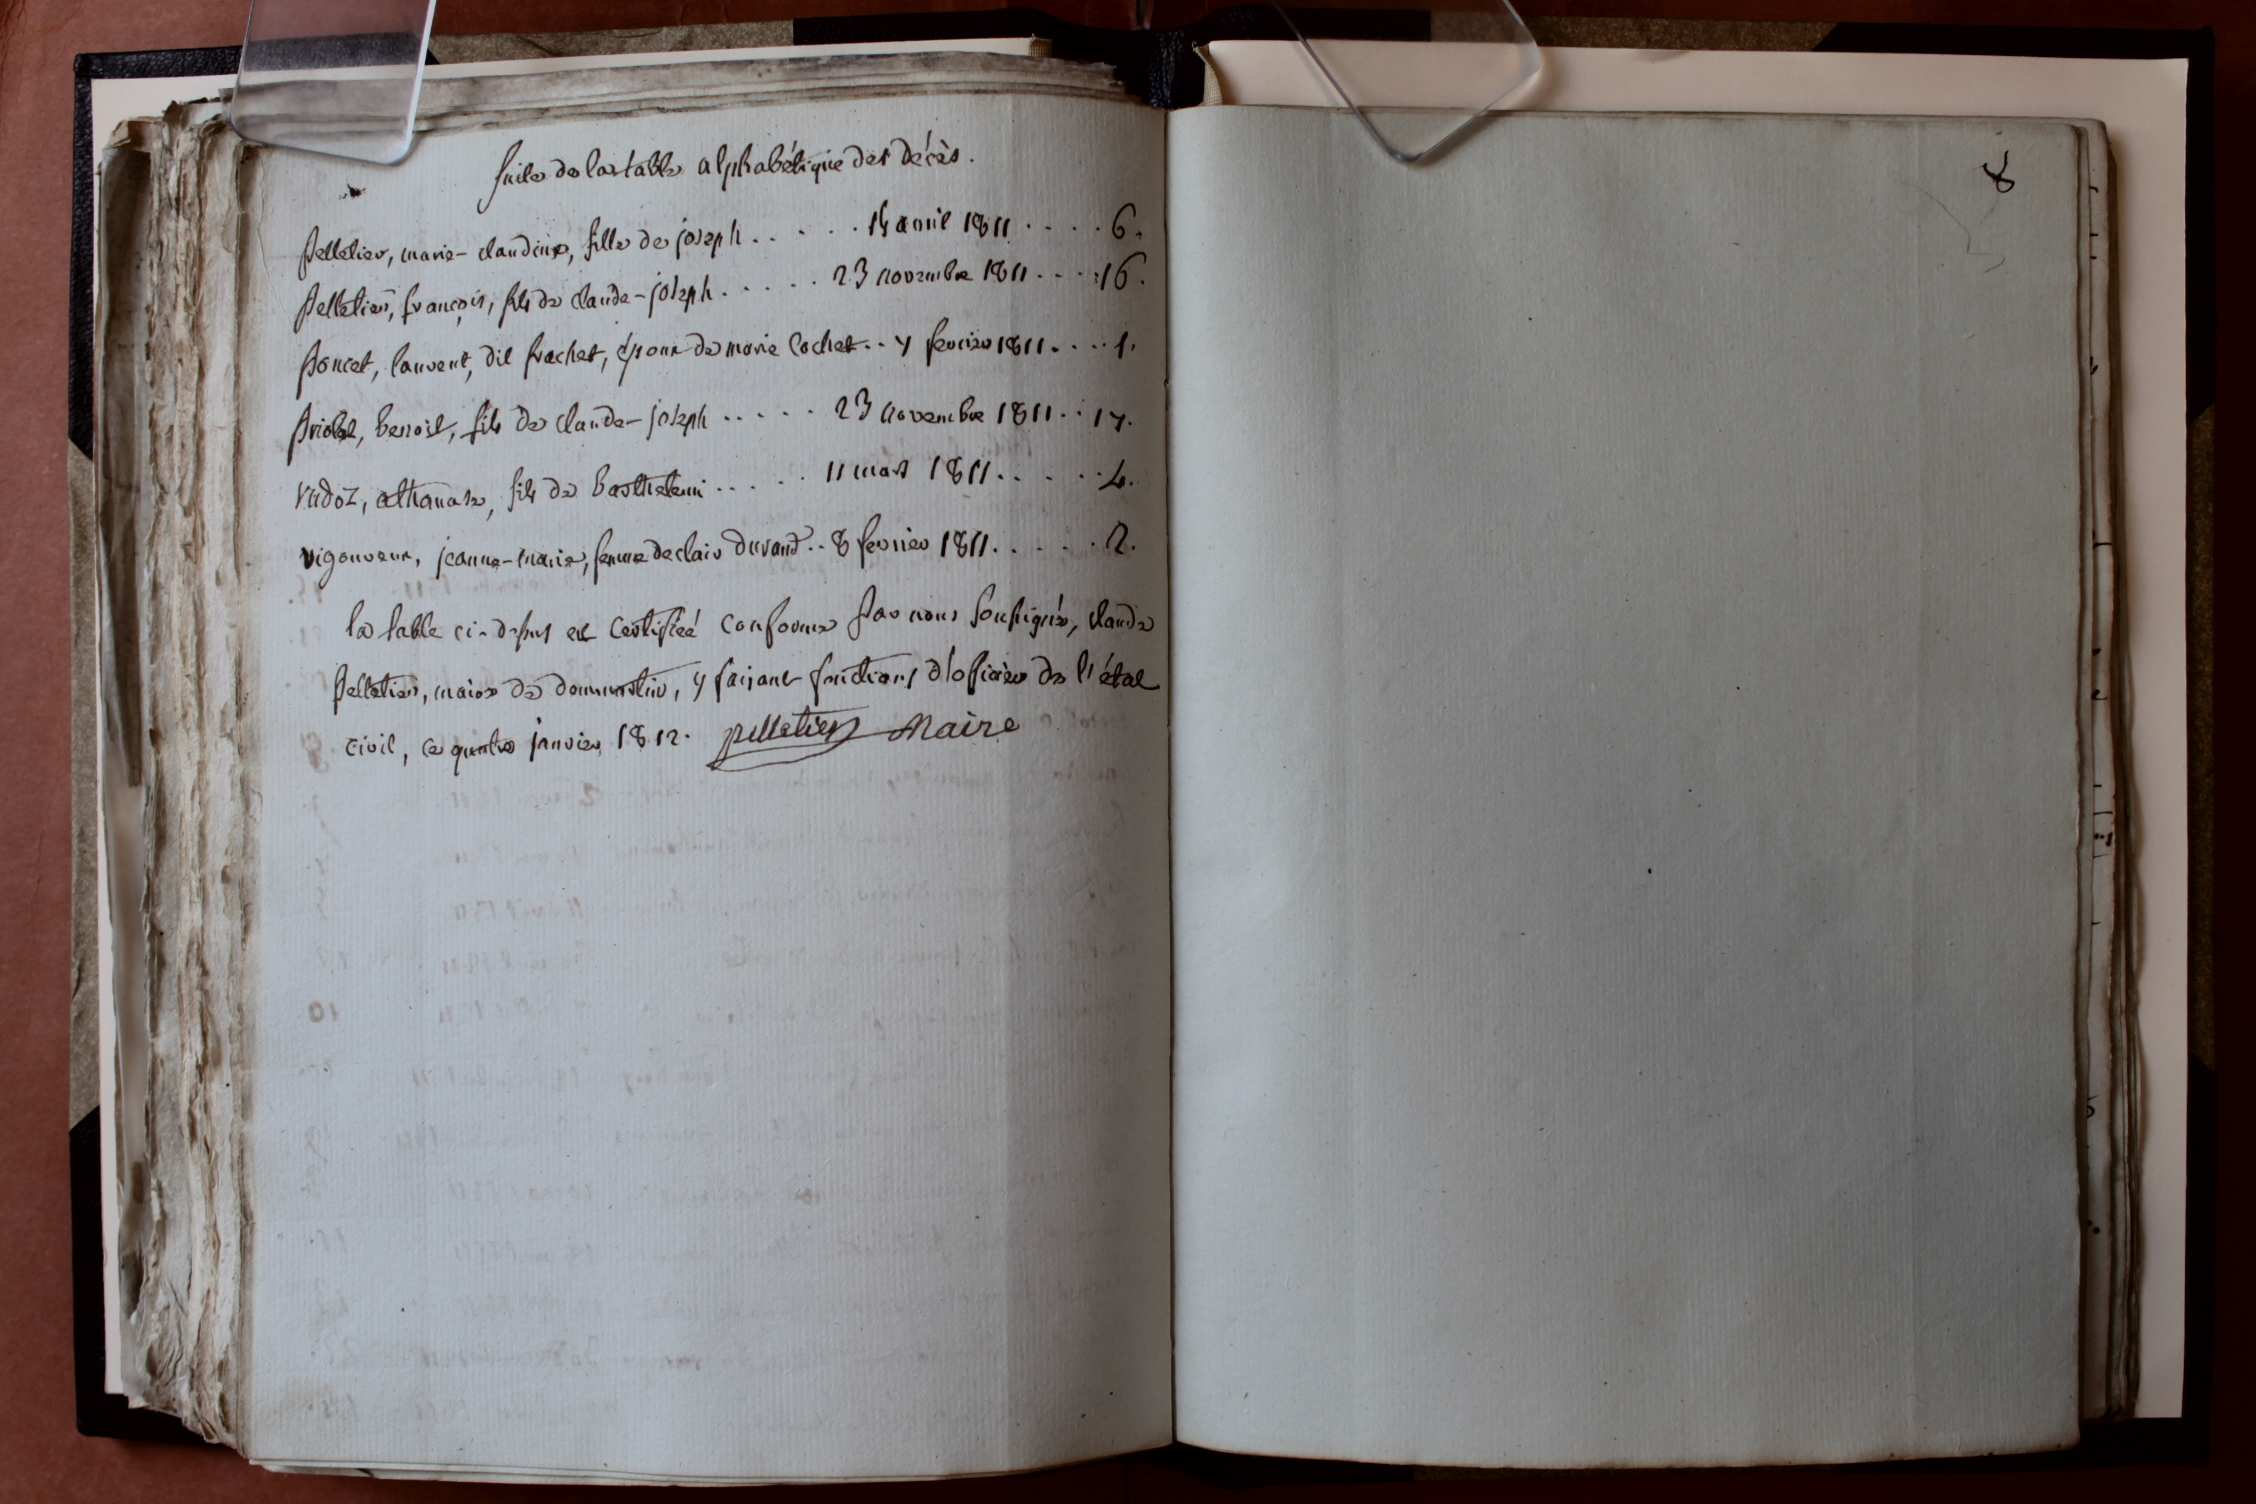 suite de la table alphabétique des décès.
pelletier, marie-claudine, fille de joseph ..... 14 avril 1811 .... 6.
pelletier, françois, fils de claude-joseph ..... 23 novembre 1811 .... 16.
poncet, laurent, dit frachet, époux de marie cochet .. 7 fevrier 1811 .... 1.
benoit, fils de claude-joseph ..... 23 novembre 1811 .. 17.
athanase, fils de barthelemi ..... 11 mars 1811 ..... 4.
jeanne-marie, femme de clair durand .. 8 fevrier 1811 ..... 2.
la table ci-dessus est certifiée conforme par nous soussigné, claude
pelletier, maire de dommartin, y faisant fonctions d'officier de l'état
civil, ce quatre janvier 1812. pelletier Maire
8